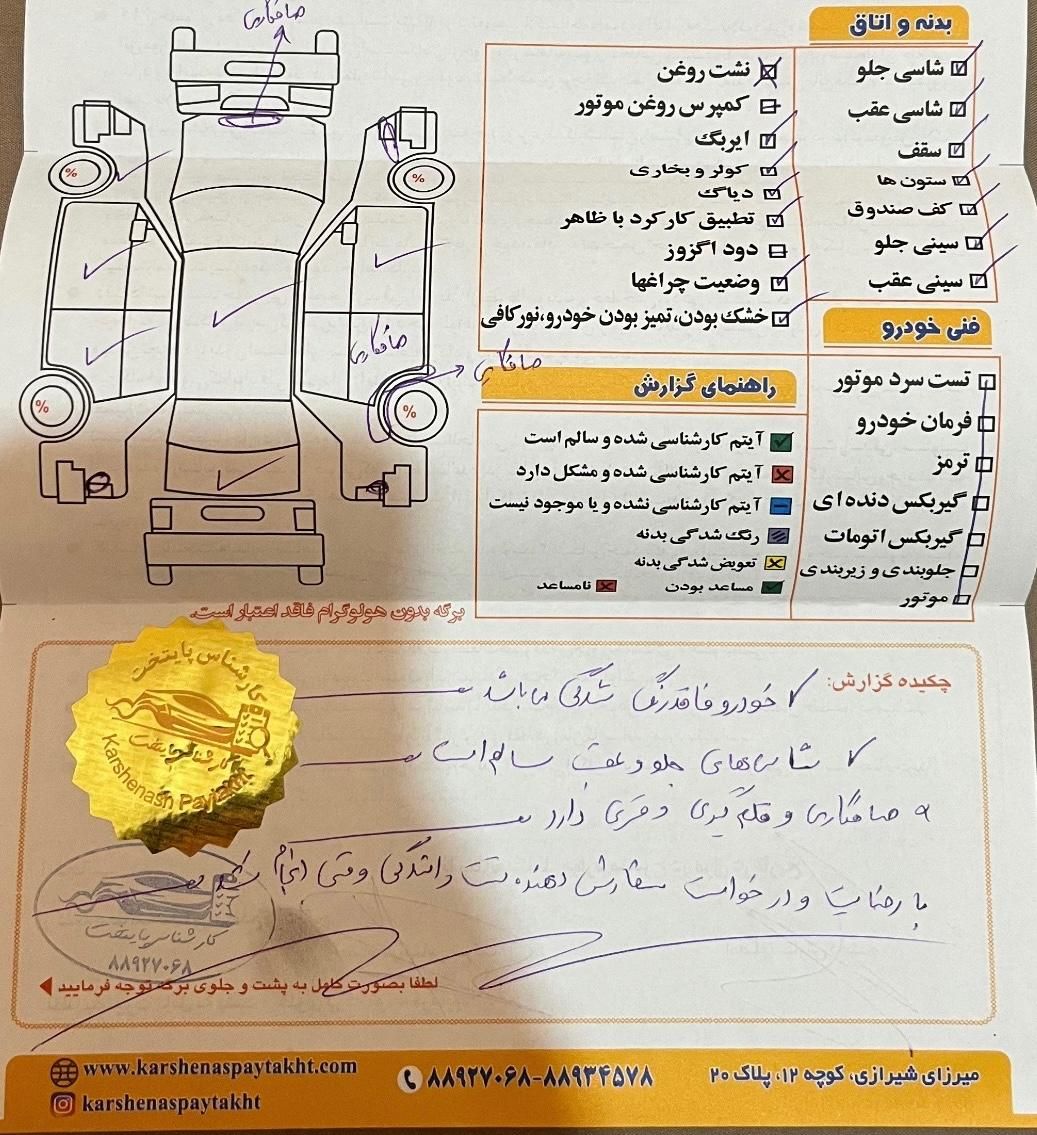 صافکاری
بدنه و اتاق
شاسی جلو
شاسی عقب
سقف
ستون ها
کف صندوق
سینی جلو
سینی عقب
نشت روغن
کمپرس روغن موتور
ایربگ
کولر و بخاری
دیاگ
تطبیق کارکرد با ظاهر
دود اگزوز
وضعیت چراغها
خشک بودن، تمیز بودن خودرو، نور کافی
فنی خودرو
تست سرد موتور
فرمان خودرو
ترمز
گیربکس دنده ای
گیربکس اتومات
جلوبندی و زیربندی
موتور
%
%
صافکاری
صافکاری
%
%
راهنمای گزارش
آیتم کارشناسی شده و سالم است
آیتم کارشناسی شده و مشکل دارد
آیتم کارشناسی نشده و یا موجود نیست
رنگ شدگی بدنه
تعویض شدگی بدنه
مساعد بودن نامساعد
برگه بدون هولوگرام فاقد اعتبار است.
چکیده گزارش:
خودرو فاقد رنگ شدگی می باشد
شاسی های جلو و عقب سالم است
صافکاری و قلم گیری و فری دارد
با رضایت و درخواست سفارش دهنده تست رانندگی و فنی انجام نشد
کارشناس پایتخت
کارشناس پایتخت
Karshenash Paytakht
کارشناس پایتخت
۸۸۹۲۷۰۶۸
لطفا بصورت کامل به پشت و جلوی برگه توجه فرمایید
www.karshenaspaytakht.com
karshenaspaytakht
۸۸۹۲۷۰۶۸-۸۸۹۳۴۵۷۸
میرزای شیرازی، کوچه ۱۲، پلاک ۲۰